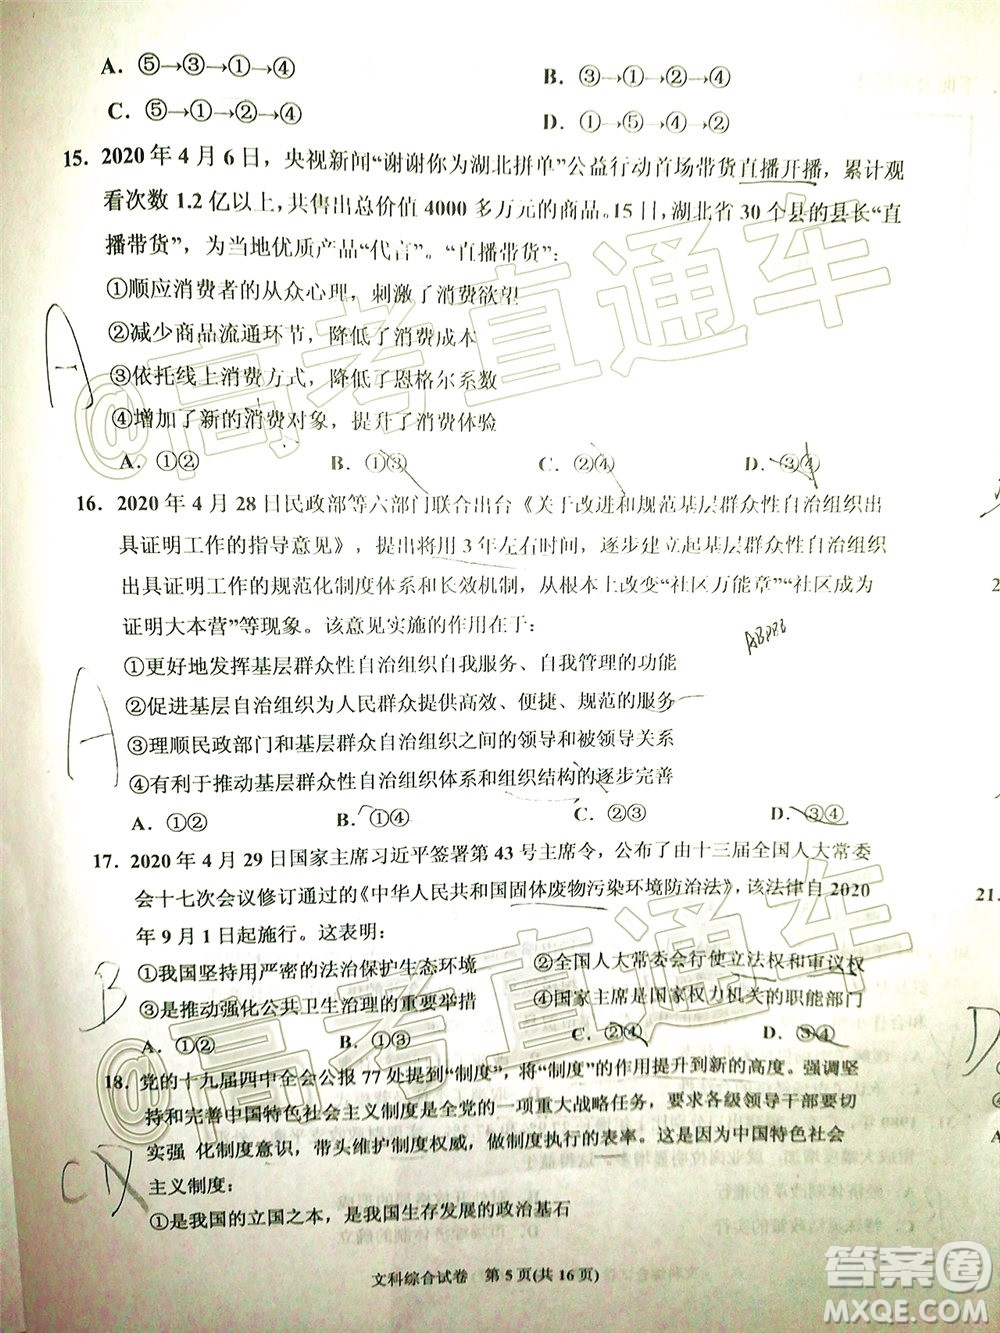 A. ⑤→③→①→④
B. ③→①→②→④
C. ⑤→①→②→④
D. ①→⑤→④→②
15. 2020 年 4 月 6 日，央视新闻“谢谢你为湖北拼单”公益行动首场带货直播开播，累计观
看次数 1.2 亿以上，共售出总价值 4000 多万元的商品。15 日，湖北省 30 个县的县长“直
播带货”，为当地优质产品“代言”。“直播带货”：
①顺应消费者的从众心理，刺激了消费欲望
②减少商品流通环节，降低了消费成本
③依托线上消费方式，降低了恩格尔系数
④增加了新的消费对象，提升了消费体验
A
A. ①②
B. ①③
C. ②④
D. ③④
16. 2020 年 4 月 28 日民政部等六部门联合出台《关于改进和规范基层群众性自治组织出
具证明工作的指导意见》，提出将用 3 年左右时间，逐步建立起基层群众性自治组织
出具证明工作的规范化制度体系和长效机制，从根本上改变“社区万能章”“社区成为
证明大本营”等现象。该意见实施的作用在于：
①更好地发挥基层群众性自治组织自我服务、自我管理的功能
②促进基层自治组织为人民群众提供高效、便捷、规范的服务
③理顺民政部门和基层群众自治组织之间的领导和被领导关系
④有利于推动基层群众性自治组织体系和组织结构的逐步完善
A
A. ①②
B. ①④
C. ②③
D. ③④
17. 2020 年 4 月 29 日国家主席习近平签署第 43 号主席令，公布了由十三届全国人大常委
会十七次会议修订通过的《中华人民共和国固体废物污染环境防治法》，该法律自 2020
年 9 月 1 日起施行。这表明：
①我国坚持用严密的法治保护生态环境
②全国人大常委会行使立法权和审议权
③是推动强化公共卫生治理的重要举措
④国家主席是国家权力机关的职能部门
B
A. ①②
B. ①③
C. ②④
D. ③④
18. 党的十九届四中全会公报 77 处提到“制度”，将“制度”的作用提升到新的高度。强调坚
持和完善中国特色社会主义制度是全党的一项重大战略任务，要求各级领导干部要切
实强 化制度意识，带头维护制度权威，做制度执行的表率。这是因为中国特色社会
主义制度：
C
①是我国的立国之本，是我国生存发展的政治基石
文科综合试卷 第 5 页(共 16 页)
21.
D
@高考直通车
@高考直通车
答案圈
MXQE.COM